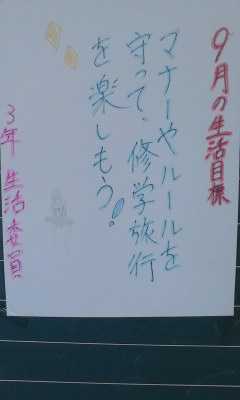 9月の生活目標
マナーやルールを
守って、修学旅行
を楽しもう!
3年生活委員